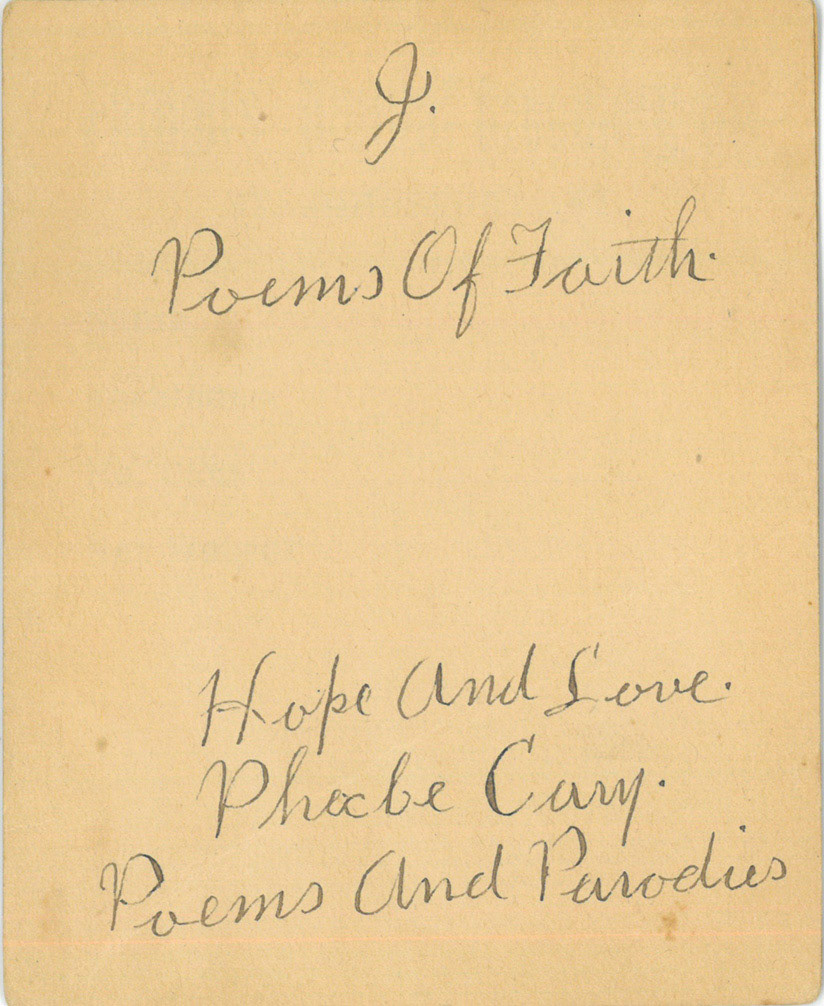 J.
Poems Of Faith.
Hope And Love.
Phoebe Cary.
Poems And Parodies